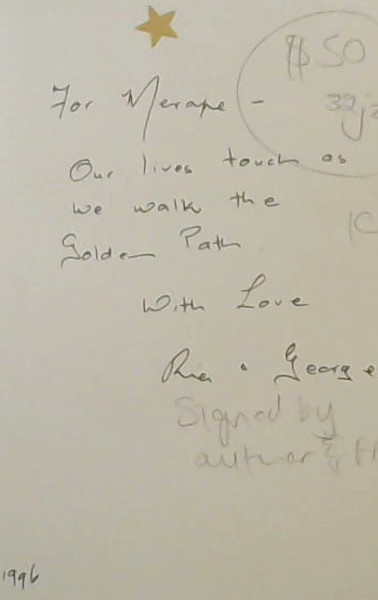 $50
For Merape -
Our lives touch as
we walk the
Golden Path
With Love
& George
Signed by
author &
1996